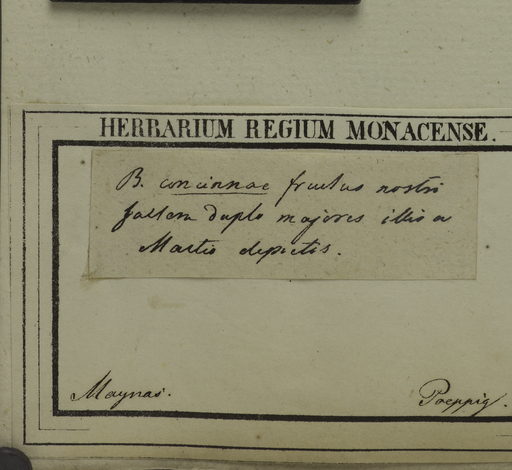 HERBARIUM REGIUM MONACENSE.
B. concinnae fructus nostri
saltem duplo majores illis a
Martio depictis.
Maynas.
Poeppig.